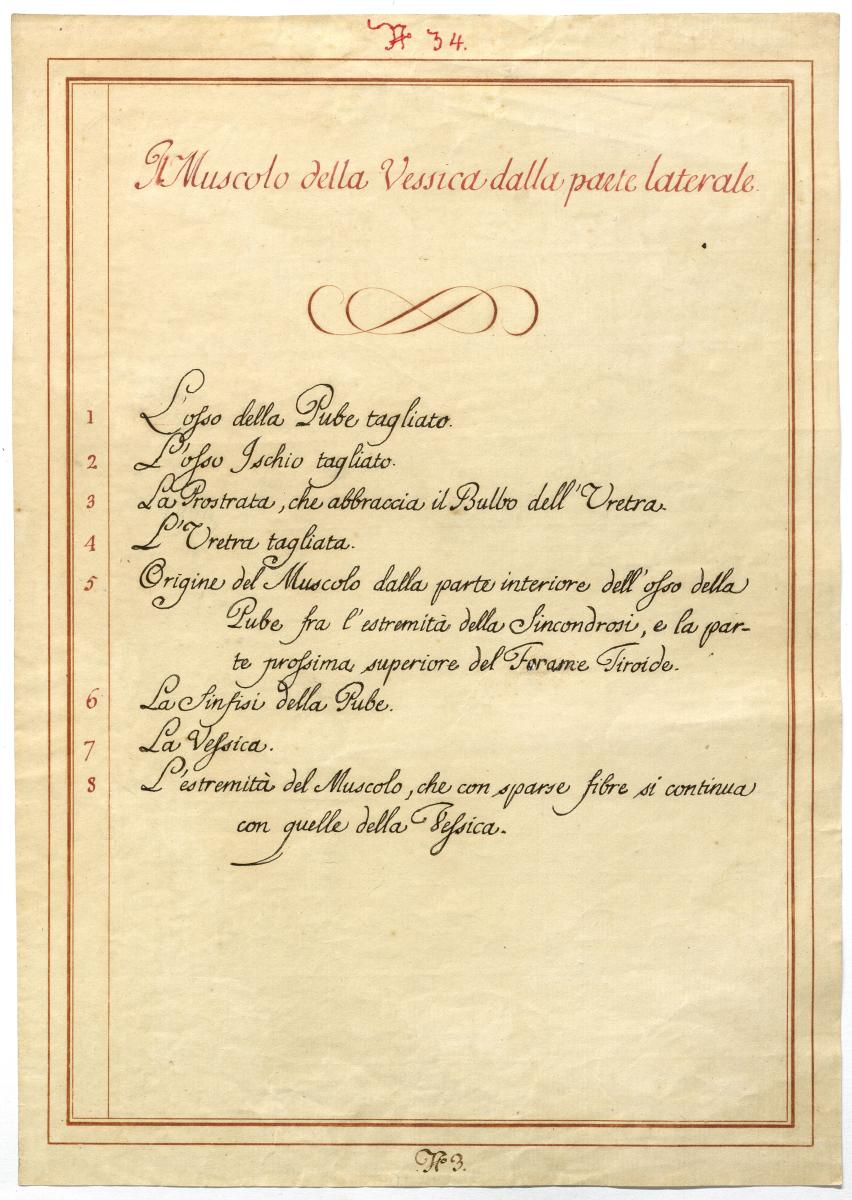 No 34.
Il Muscolo della Vessica dalla parte laterale.
1 L'osso della Pube tagliato.
2 L'osso Ischio tagliato.
3 La Prostrata, che abbraccia il Bulbo dell'Uretra.
4 L'Uretra tagliata.
5 Origine del Muscolo dalla parte interiore dell'osso della
Pube fra l'estremità della Sincondrosi, e la par-
te prossima superiore del Forame Tiroide.
6 La Sinfisi della Pube.
7 La Vessica.
8 L'estremità del Muscolo, che con sparse fibre si continua
con quelle della Vessica.
No 3.